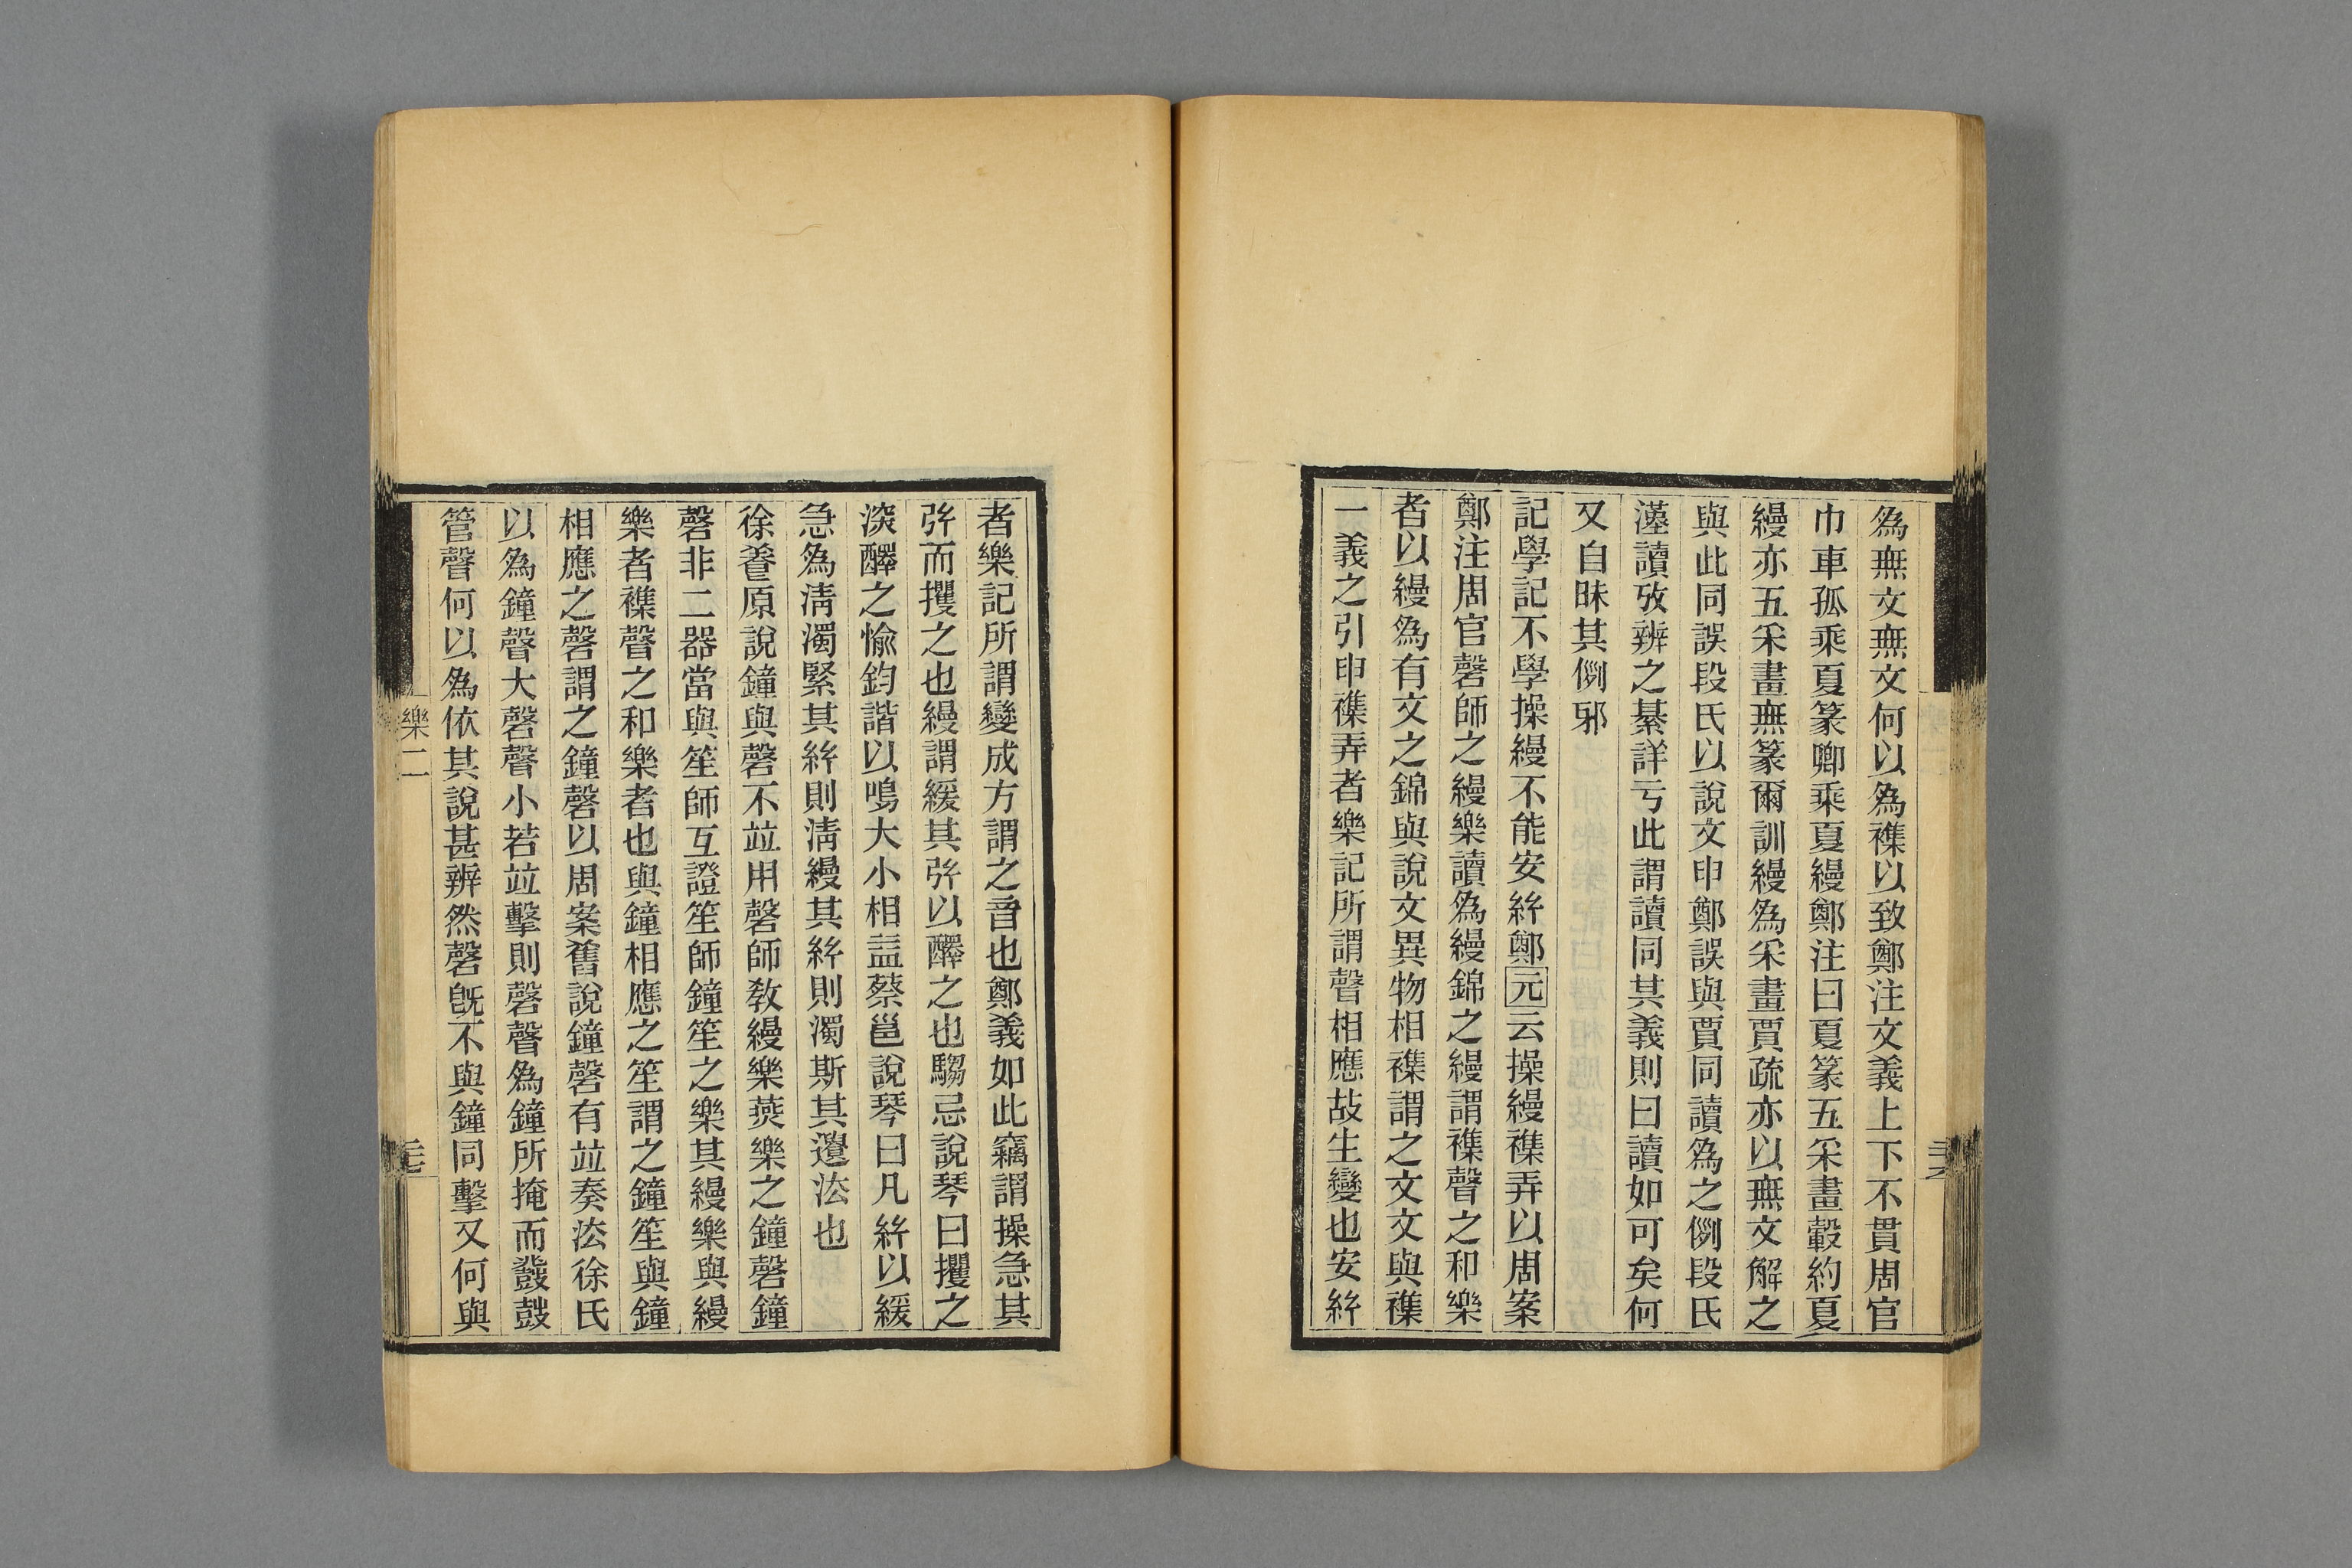 爲無文無文何以爲襍以致鄭注文義上下不貫周官
巾車孤乘夏篆卿乘夏縵鄭注曰夏篆五采畫轂約夏
縵亦五采畫無篆爾訓縵爲采畫賈疏亦以無文解之
與此同誤段氏以說文申鄭誤與賈同讀爲之例段氏
漢讀攷辨之綦詳亏此謂讀同其義則曰讀如可矣何
又自昧其例邪
記學記不學操縵不能安絃鄭元云操縵襍弄以周案
鄭注周官磬師之縵樂讀爲縵錦之縵謂襍聲之和樂
者以縵爲有文之錦與說文異物相襍謂之文文與襍
一義之引申襍弄者樂記所謂聲相應故生變也安絃
者樂記所謂變成方謂之音也鄭義如此竊謂操急其
弦而攫之也縵謂緩其弦以醳之也騶忌說琴曰攫之
深醳之愉鈞諧以鳴大小相益蔡邕說琴曰凡絃以緩
急爲淸濁緊其絃則淸縵其絃則濁斯其遺法也
徐養原說鐘與磬不竝用磬師敎縵樂燕樂之鐘磬鐘
磬非二器當與笙師互證笙師鐘笙之樂其縵樂與縵
樂者襍聲之和樂者也與鐘相應之笙謂之鐘笙與鐘
相應之磬謂之鐘磬以周案舊說鐘磬有竝奏法徐氏
以爲鐘聲大磬聲小若竝擊則磬聲爲鐘所掩而鼗鼓
管聲何以爲依其說甚辨然磬旣不與鐘同擊又何與
樂二